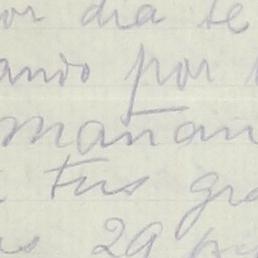 or dia te
ando por
mañan
tus gra
29